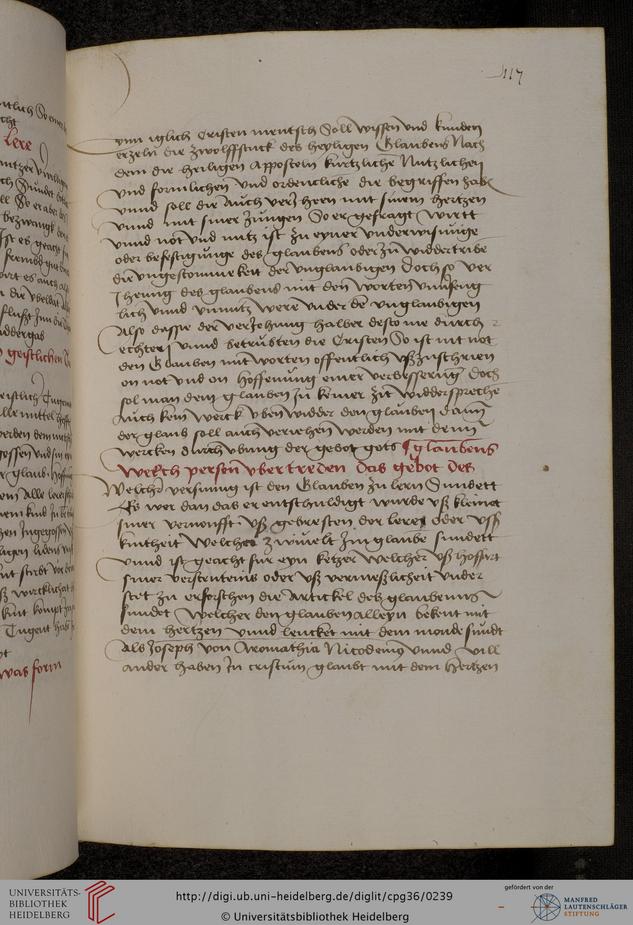 117
ynn iglich Cristen mentsch Soll wissen vnd kunden
erzeln die zwolffstuck des heyligen Glaubens Nach
dem die heiligen apposteln kurtzliche Nutzlichen
vnd formlichen vnd ordentliche die begriffen habe
vnnd soll die auch verJhern mit sinem hertzen
vnnd mit siner zungen So er gefragt wirtt
vnnd nott vnd nutz ist zu eyner vnderwisunge
oder befestigunge des glaubens oder zu widdertribe
die vngestommekeit der vnglaubigen Doch so ver
Jhenug des glaubens mit den worten vnuseng
lich vnnd vnnutz were vnder de vnglaubigen
Also dasse der verJehung halber desto me durch
echten vnnd betrubten die Cristen So ist nit not
den Glauben mit worten offentlich vßzuschrien
on not vnd on Hoffenung einer verbesserung Doch
sol man dem glauben zu keiner zit widdersprechē
Auch kein werck vben widder den glauben dann
der glaub soll auch veriehen werden mit denn
wercken durch vbung der gebot gots glaubens
Welch person vbertreden das gebot des
Welcher versumig ist den Glauben zu lern Sundett
Es wer dan das er entschuldigt wurde vß kleinet
siner vernonfft vß gebresten der lerer oder vß
kintheit Welcher zwiuelt Jm glaube sundett
vnnd ist geacht fur eyn ketzer Welcher vß Hoffart
siner verstentenis oder vß vermeßlicheit vnder
stet zu erforschen die Artickel des glaubenns
sundet Welcher den glauben alleyn bekent mit
dem hertzen vnnd leucket mit dem monde sundt
als Joseph von Aromathia Nicodemus vnnd vill
ander haben Jn cristum glaubt mit dem Hertzen
Lere
geistlichen
was form
UNIVERSITÄTS-
BIBLIOTHEK
HEIDELBERG
http://digi.ub.uni-heidelberg.de/diglit/cpg36/0239
© Universitätsbibliothek Heidelberg
gefördert von der
MANFRED
LAUTENSCHLÄGER
STIFTUNG